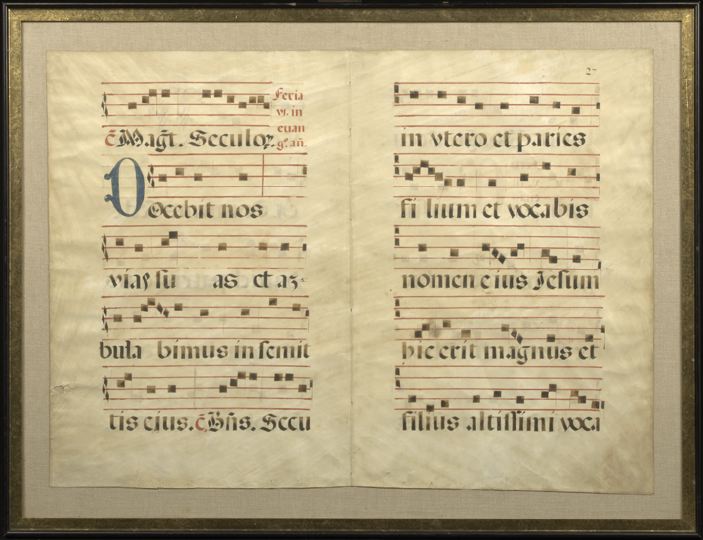 č Magt̃. Seculoꝝ.
Feria
vj. in
euan
g̃. añ.
Docebit nos
vias su as et az-
bula bimus in semit
tis ejus. č Bñs. Secu
27
in vtero et paries
fi lium et vocabis
nomen e ius Jesum
hic erit magnus et
filius altissimi voca